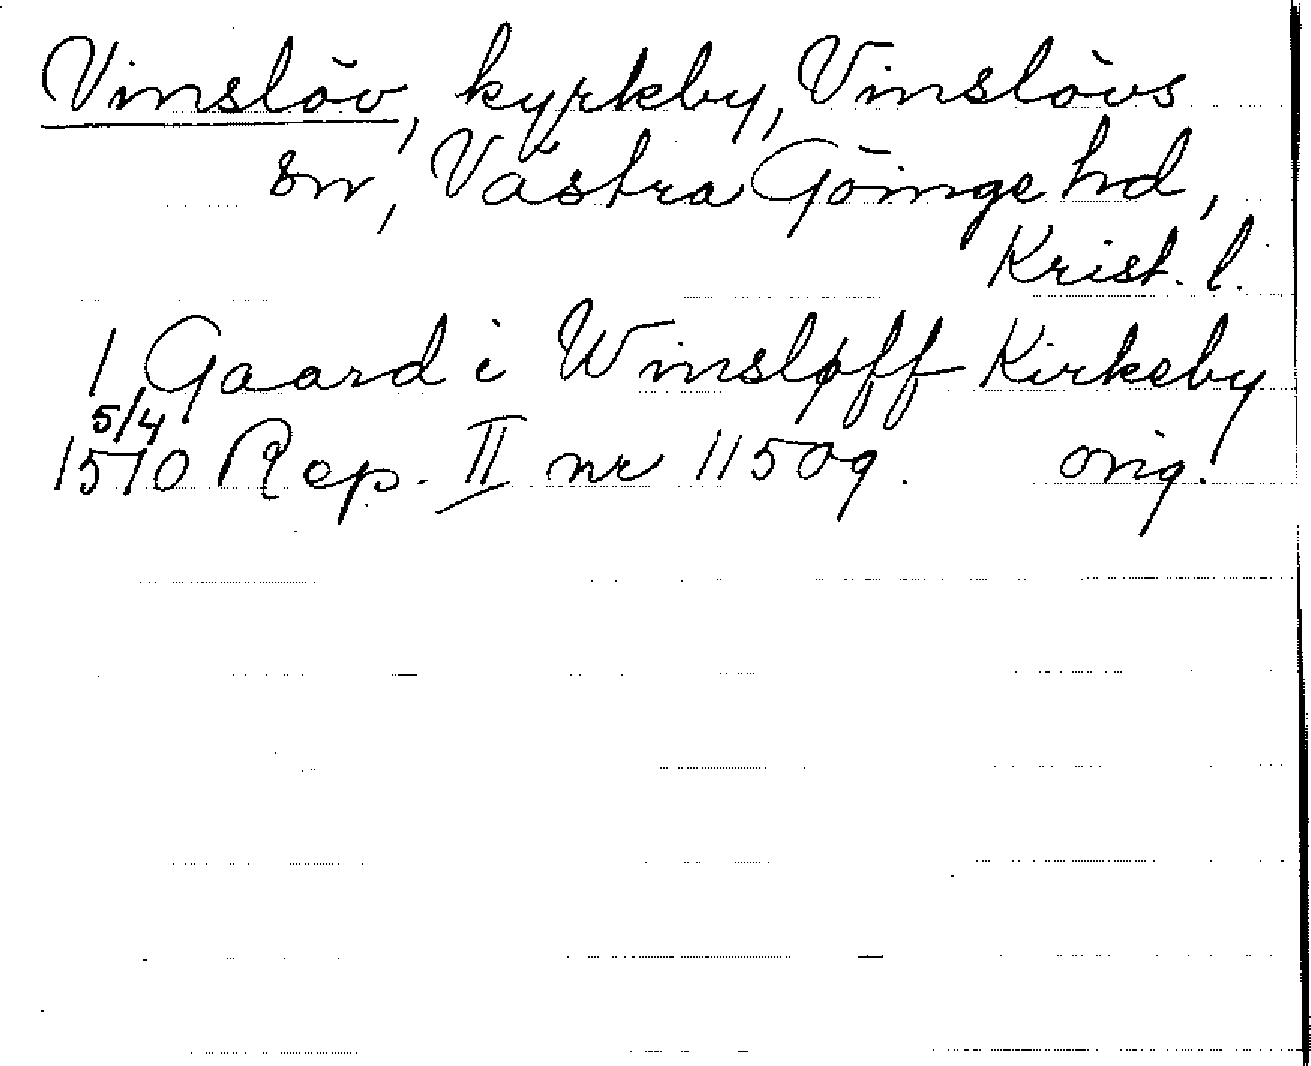 Vinslöv, kyrkby, Vinslövs
sn, Västra Göinge hd,
Krist. l.
1 Gaard i Winsløff Kirkeby
5/4
1570 Rep. II nr 11509. orig.